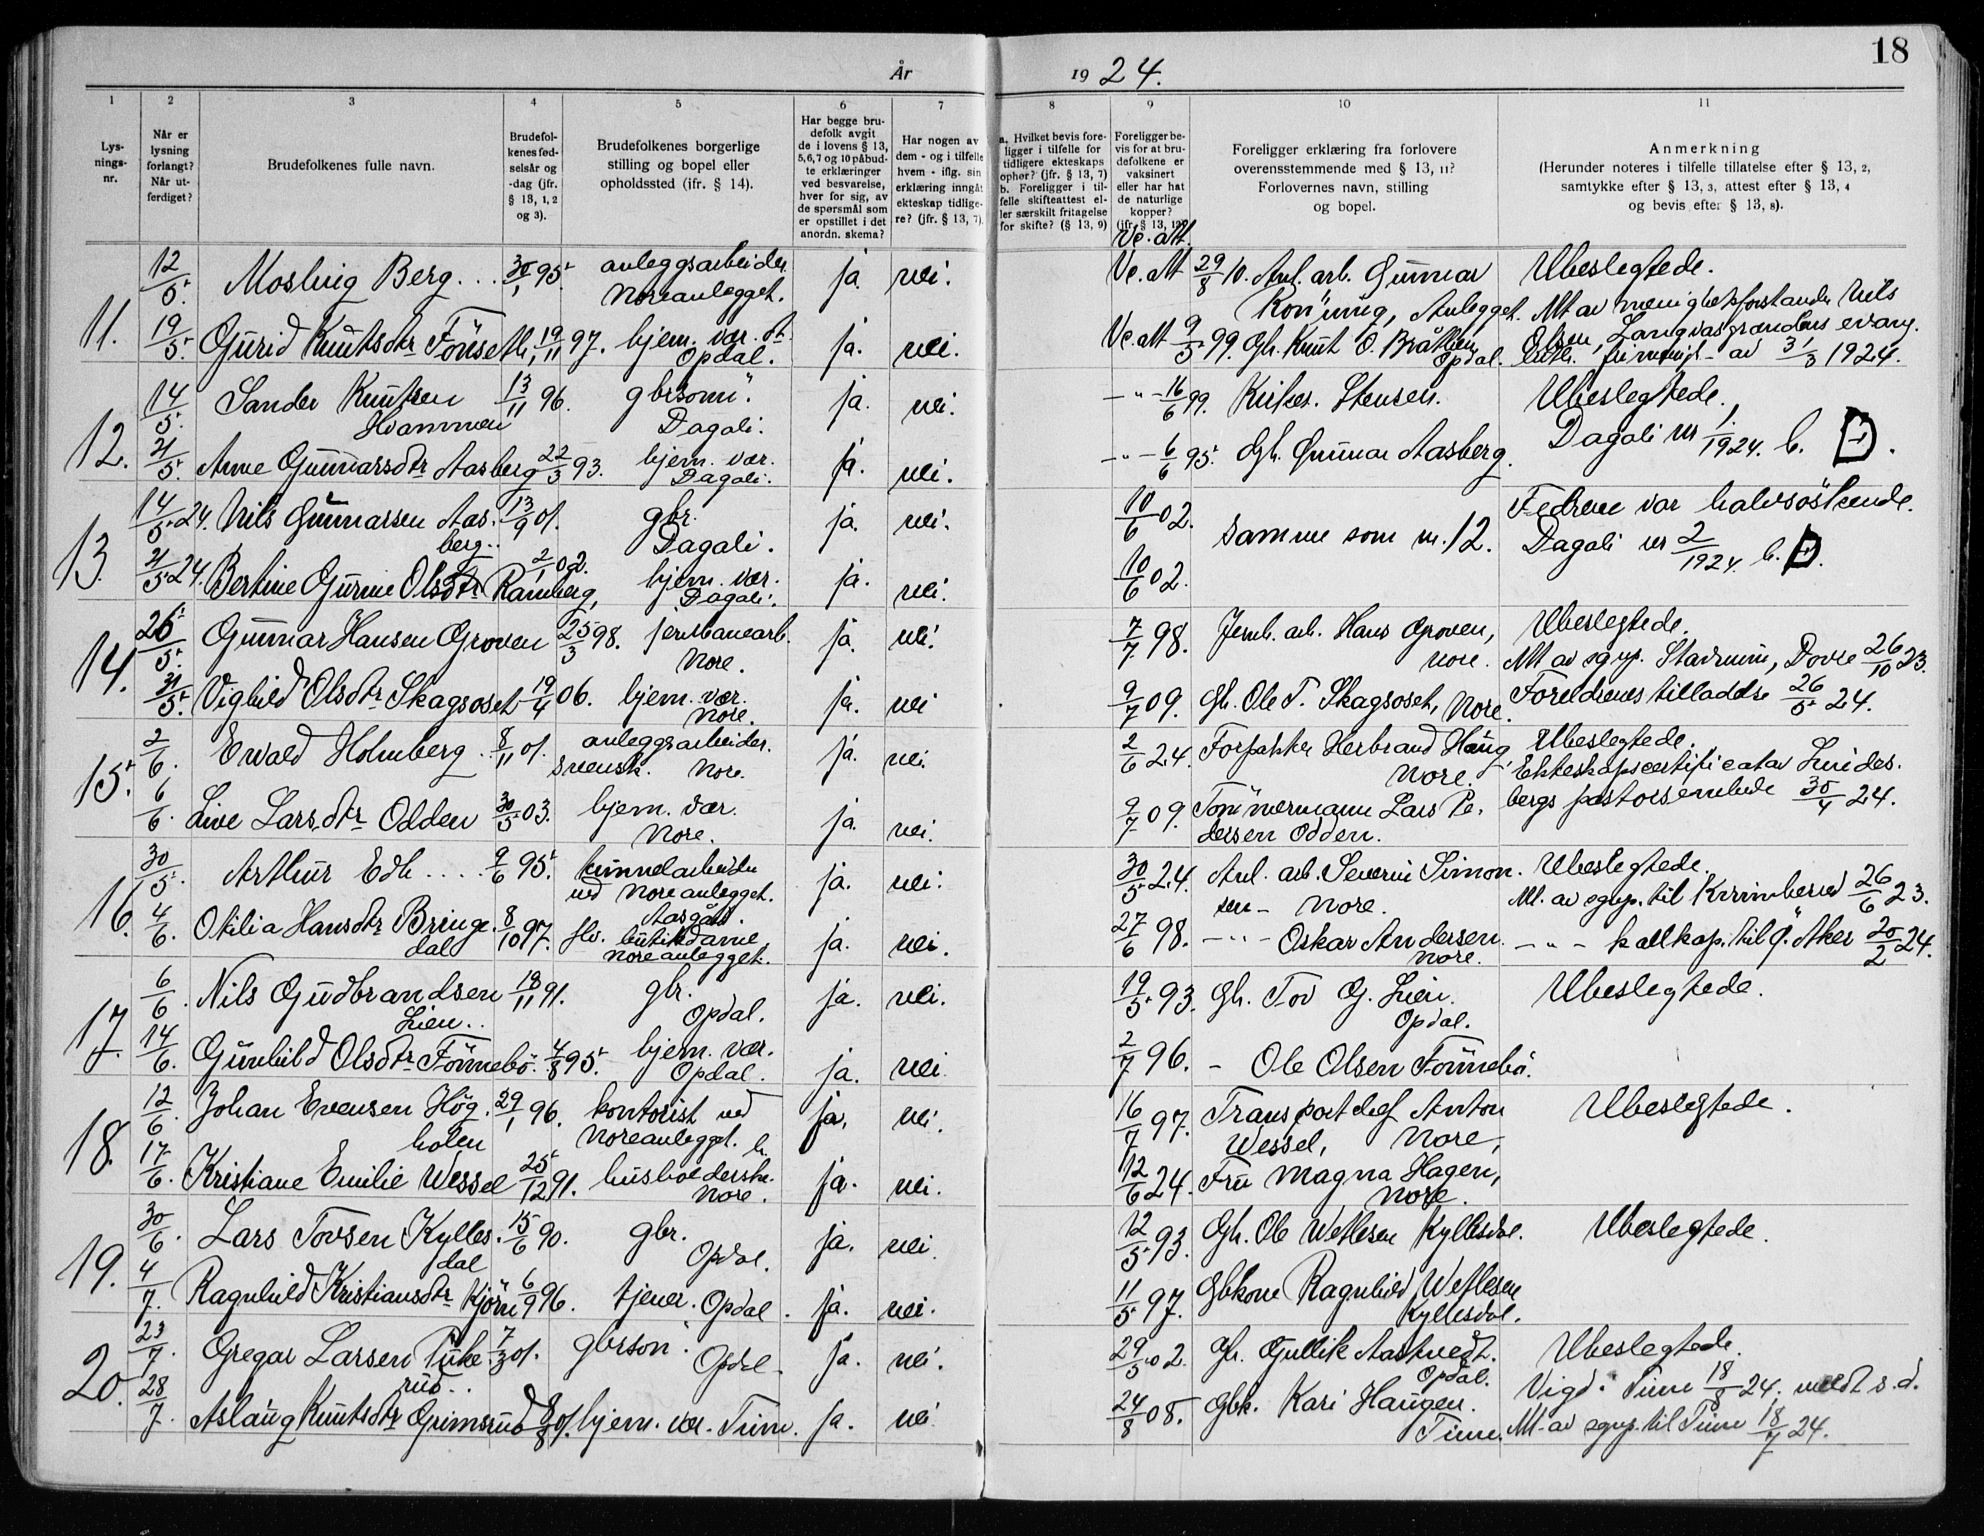 18
År 1924.
1 2 3 4 5 6 7 8 9 10 11
Lys-
nings-
nr.
Når er
lysning
forlangt?
Når ut-
ferdiget?
Brudefolkenes fulle navn.
Brudefol-
kenes fød-
selsår og
-dag (jfr.
§ 13, 1, 2
og 3).
Brudefolkenes borgerlige
stilling og bopel eller
opholdssted (ifr. § 14).
Har begge bru-
defolk avgit
de i lovens § 13,
5,6,7 og 10 påbud-
te erklæringer
ved besvarelse,
hver for sig, av
de spørsmål som
er opstillet i det
anordn. skema?
Har nogen av
dem - og i tilfelle
hvem - iflg. sin
erklæring inngåt
ekteskap tidlige-
re? (jfr. § 13, 7)
a. Hvilket bevis fore-
ligger i tilfelle for
tidligere ekteskaps
ophør? (jfr. § 13, 7)
b. Foreligger i til-
felle skifteattest el-
ler særskilt fritagelse
for skifte? (§ 13, 9)
Foreligger be-
vis for at bru-
defolkene er
vaksinert
eller har hat
de naturlige
kopper?
(jfr. § 13, 10)
Foreligger erklæring fra forlovere
overensstemmende med § 13, 11?
Forlovernes navn, stilling
og bopel.
Anmerkning
(Herunder noteres i tilfelle tillatelse efter § 13, 2,
samtykke efter § 13, 3, attest efter § 13, 4
og bevis efter § 13, 8).
Vc. att.
11. 12/5. Moslung Berg... 30/1 95. anleggsarbeider ja. nei. Vc. att 29/8 10. Anl. arb. Gunnar Ubeslegtede.
Noreanlegget. Konüng, Anlegget. Att av menighetsforstander Nils
19/5. Gurid Knutsdtr Fönseth, 19/11 97. hjem. vær. dt. ja. nei. Vc. att 9/5 99. Gb. Knut O. Bråthen, Olsen, Langvasgrendens evang.
Opdal. Opdal. luth. frimenigh. av 31/3 1924.
12. 14/5. Sander Knutsen 13/11 96. gbrsönn. ja. nei. -"- 16/6 99. Kirkes. Stensen. Ubeslegtede.
Hvammen Dagali.
21/5. Anne Gunnarsdtr Aasberg 22/3 93. hjem. vær. ja. nei. -"- 6/6 95. Gb. Gunnar Aasberg. Dagali nr 1/1924. b.
Dagali.
13. 14/5 24. Nils Gunnarsen Aas- 13/9 01. gbr. ja. nei. 10/6 02. samme som nr. 12. Fedrene var halvsöskende.
berg.. Dagali. Dagali nr 2/1924. b.
21/5 24. Bertine Gurine Olsdtr Ramberg, 2/1 02. hjem. vær. ja. nei. 10/6 02.
Dagali.
14. 26/5. Gunnar Hansen Groven 25/3 98. jernbanearb. ja. nei. 7/7 98. Jernb. arb. Hans Groven, Ubeslegtede.
Nore. Nore. Att av sognp. Dovre 26/10 23.
31/5. Vighild Olsdtr Skagsoset 19/4 06. hjem. vær. ja. nei 9/7 09. Gb. Ole T. Skagsoset, Nore. Foreldrenes tilladelse 26/5 24.
Nore.
15. 2/6. Ewald Holmberg.. 8/11 01. anleggsarbeider. ja. nei 2/6 24. Forpakter Herbrand Haug, Ubeslegtede.
svensk. Nore. Nore. Ekteskapscertificat av Lindes-
6/6. Live Larsdtr Odden 30/5 03. hjem. vær. ja. nei. 9/7 09. Tömmermann Lars Pe- bergs pastorsembede 30/4 24.
Nore. dersen Odden.
16. 30/5. Arthur Edh.... 9/6 95. tunnelarbeider ja. nei. 30/5 24. Anl. arb. Severin Simon- Ubeslegtede.
ved Noreanlegget. sen - Nore. Att. av sognp. til 26/6 23.
4/6. Otilia Hansdtr Bringe- 8/10 97. flv. Aasgård. ja. nei. 27/6 98. -"- Oskar Andersen. -"- kallkap. til Ö. Aker 20/2 24.
dal butikdame Nore.
Noreanlegget.
17. 6/6. Nils Gudbrandsen 18/11 91. gbr. ja. nei. 19/5 93. Gb. Tov G. Lien. Ubeslegtede.
Lien.. Opdal. Opdal.
14/6. Gunhild Olsdtr Fönnebö. 4/8 95. hjem. vær. ja. nei. 2/7 96. - Ole Olsen Fönnebö.
Opdal.
18. 12/6. Johan Evensen Hög- 29/1 96. kontorist ved ja. nei. 16/7 97. Transportchef Anton Ubeslegtede.
holen Noreanlegget. Wessel, Nore,
17/6. Kristiane Emilie Wessel 25/12 91. husholderske. ja. nei. 12/6 24. Fru Magna Hagen,
Nore. Nore.
19. 30/6. Lars Tovsen Kylles- 15/6 90. gbr. ja. nei. 12/5 93. Gb. Ole Wetlesen Kyllesdal. Ubeslegtede.
dal Opdal.
4/7. Ragnhild Kristiansdtr Kjörn 6/9 96. tjener. Opdal. ja. nei. 11/5 97. Gbkone Ragnhild Wetlesen
Kyllesdal.
20. 23/7. Gregar Larsen Tuke- 7/3 01. gbrsön. ja. nei. 29/5 02. Gb. Gullik Aastvedt. Ubeslegtede.
rud.. Opdal. Opdal. Vigd. Tinn 18/8 24. meldt s.d.
28/7. Aslaug Knutsdtr Grimsrud 8/8 01. hjem. vær. Tinn. ja. nei. 24/8 08. Gbk. Kari Haugen. Att. av sognp. til Tinn 18/7 24.
Tinn.